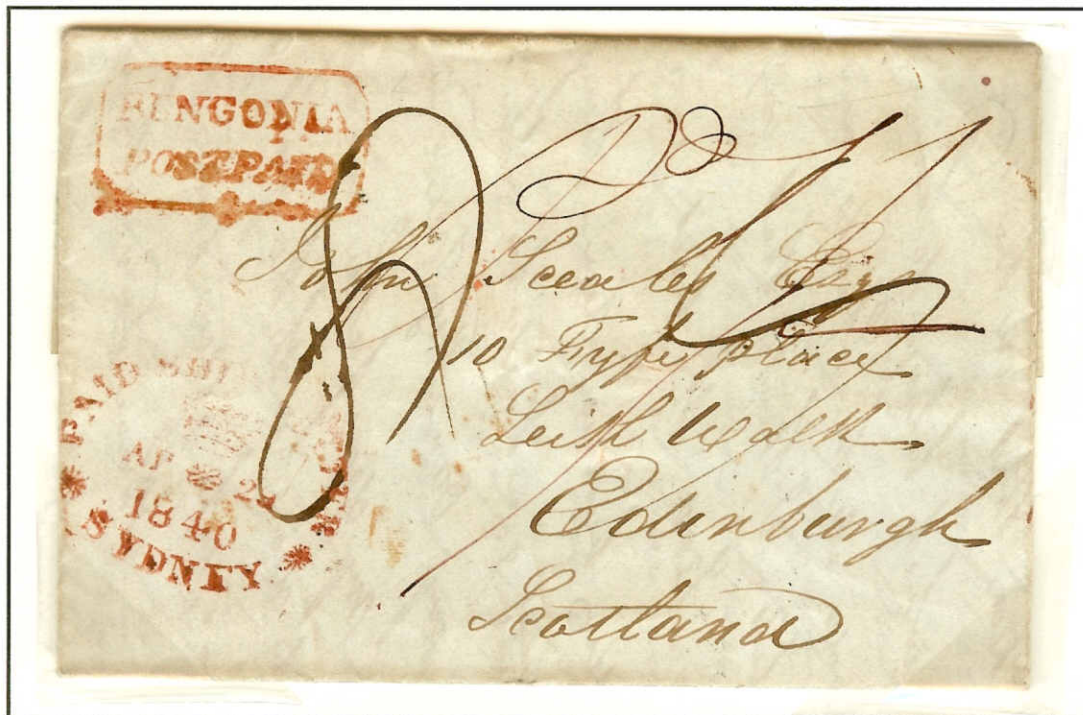 BUNGONIA
POSTPAID
John Sceales Esqr
10 Fyfe place
Leith Walk
Edinburgh
Scotland
PAID SHIP
AP 2
1840
SYDNEY
8